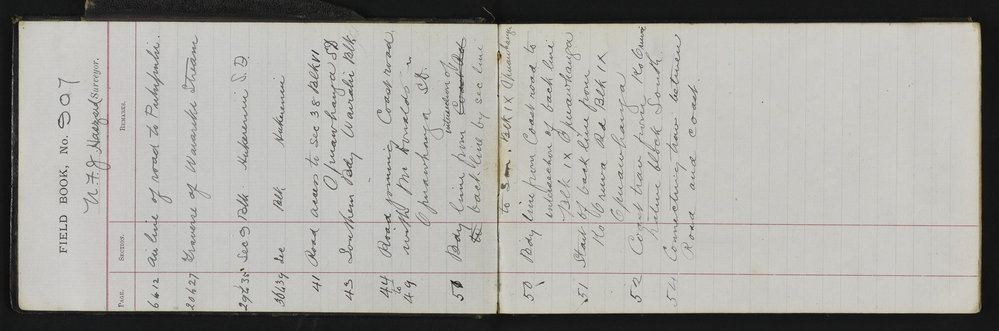 FIELD BOOK, No. 807
N. F. J. Hazzard Surveyor.
PAGE. SECTION. REMARKS.
6 to 12 Air line of road to
20 to 27 Traverse of Waiaraka Stream
29 to 35 Sec 9 Blk Nukareinii S.D
36 to 39 Sec Blk
41 Road access to Sec 38 Blk VI
Opuawhanga SD
43 Southern Bdy Wairahi Blk
44 to 49 Road joining Coast road
with McDonalds
Opuawhanga St.
50 Bdy line from intersection of
back line by sec line
to Blk IX Opuawhanga
50 Bdy line from Coast road to
intersection of back line
Blk IX Opuawhanga
51 Start of back line from
Ko Eruera Rd Blk IX
Opuawhanga
52 Coast trav from Ko Eruera
native block South
54 Connecting trav between
Road and coast.